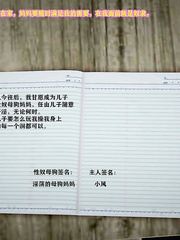 在家，妈妈要随时满足我的需要，在我面前就是奴隶。
今夜后，我甘愿成为儿子
奴母狗妈妈，任由儿子随意
淫，无论何时，
子要怎么玩我操我身上
每一个洞都可以，
性奴母狗签名： 主人签名：
淫荡的母狗妈妈 小风